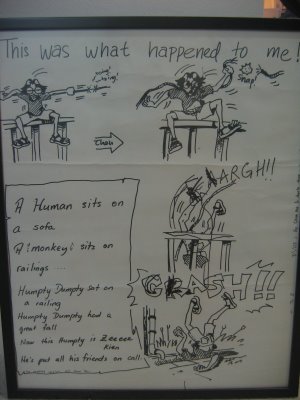 This was what happened to me!
Snap!
Then
ARGH!!
CRASH!!!
A Human sits on
a sofa
A !monkey! sits on
railings ....
Humpty Dumpty sat on
a railing
Humpty Dumpty had a
great fall
Now this Humpty is Zeeeee
Kien
He's put all his friends on call.